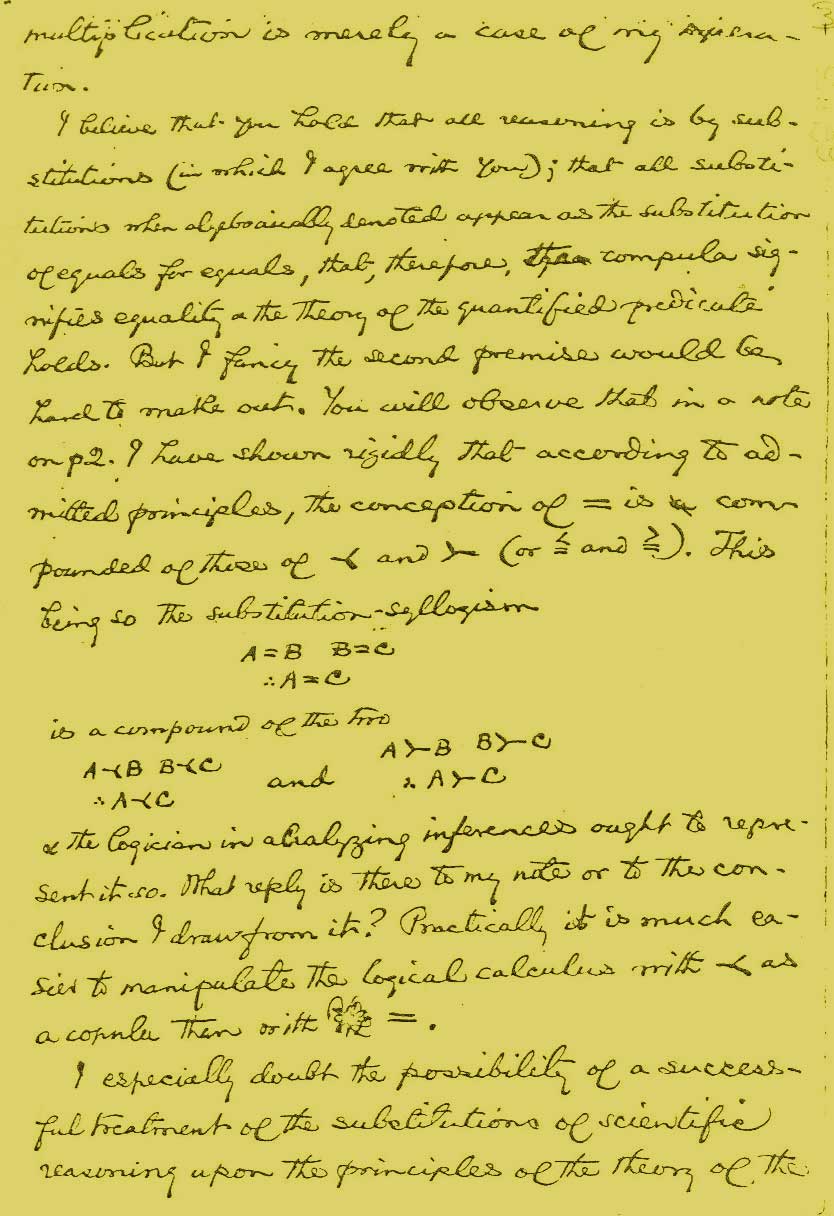 multiplication is merely a case of my opera-
tion.
I believe that you hold that all reasoning is by sub-
stitutions (in which I agree with you); that all substi-
tutions when algebraically denoted appear as the substitution
of equals for equals, that, therefore, the compula sig-
nifies equality & the theory of the quantified predicate
holds. But I fancy the second premise would be
hard to make out. You will observe that in a note
on p2. I have shown rigidly that according to ad-
mitted principles, the conception of = is com-
pounded of those of ⤙ and ⤚ (or ≦ and ≧). This
being so the substitution-syllogism
A = B B = C
∴ A = C
is a compound of the two
A ⤙ B B ⤙ C A ⤚ B B ⤚ C
and
∴ A ⤙ C ∴ A ⤚ C
& the logician in analyzing inferences ought to repre-
sent it so. What reply is there to my note or to the con-
clusion I draw from it? Practically it is much ea-
sier to manipulate the logical calculus with ⤙ as
a copula than with =.
I especially doubt the possibility of a success-
ful treatment of the substitutions of scientific
reasoning upon the principles of the theory of the